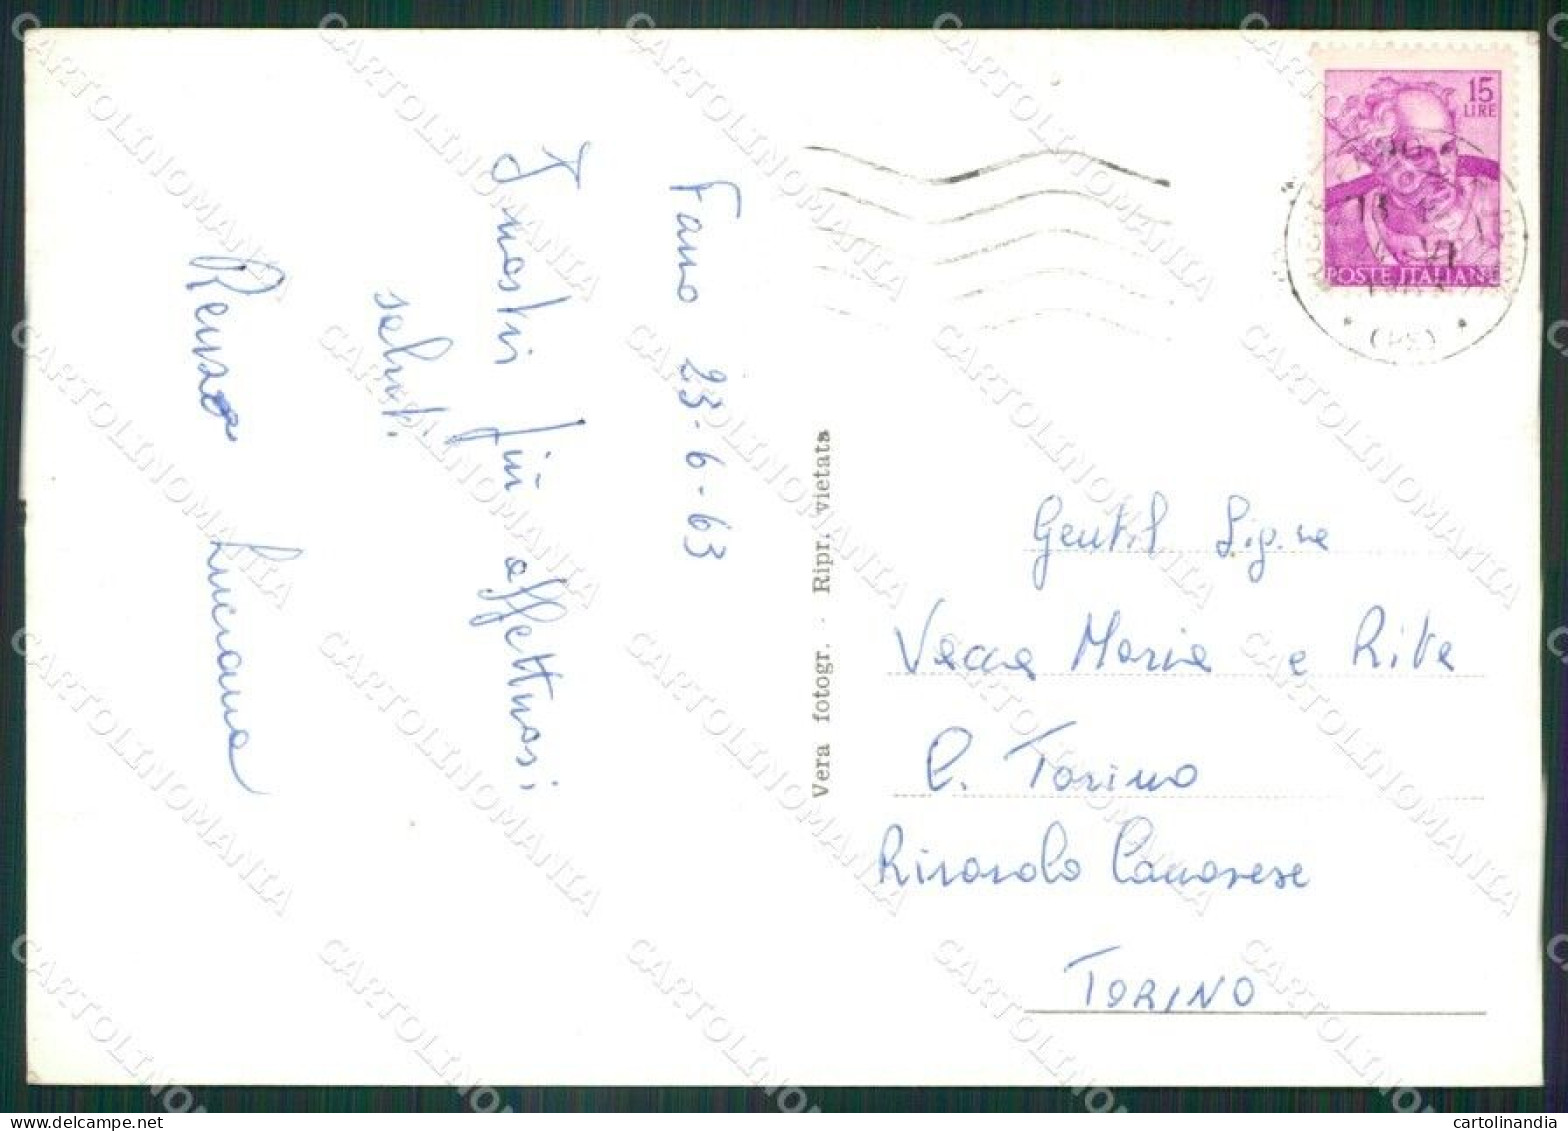 Fano 23-6-63
I nostri più affettuosi
saluti.
Renzo Luciana
Vera fotogr. - Ripr. vietata
15
LIRE
POSTE ITALIANE
(PS)
Gentil. Sig.ne
Vacca Maria e Rita
C. Torino
Rivarolo Canavese
TORINO
CARTOLINOMANIA
cartolinandia